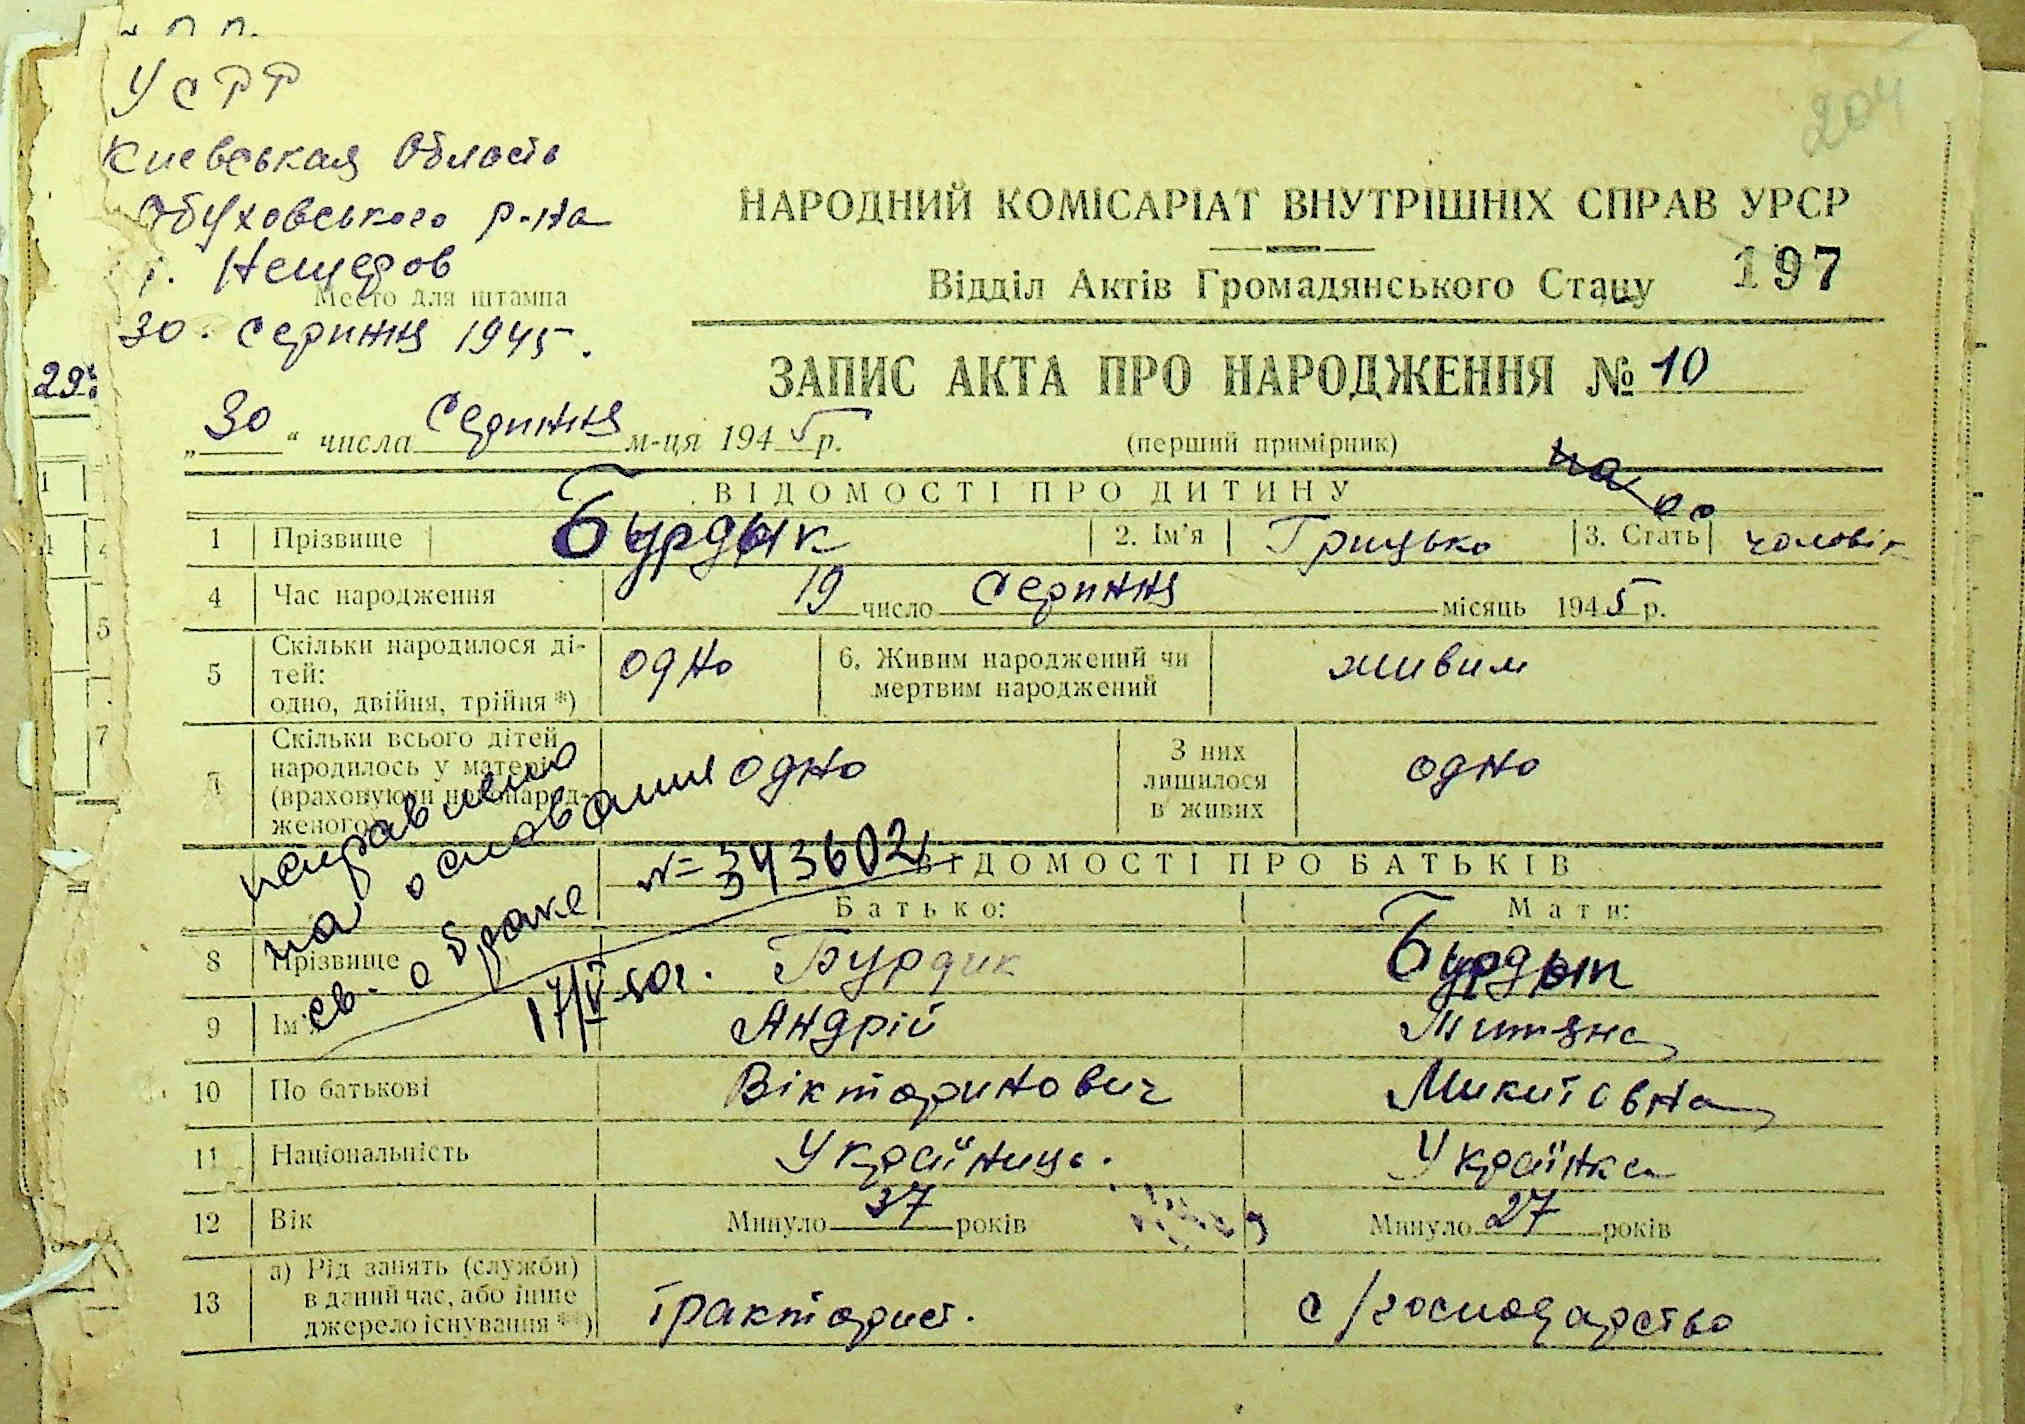 УСРР
Киевськая Область
Обуховського р-на
Нещеров
Место для штампа
30. серпня 1945.
204
НАРОДНИЙ КОМІСАРІАТ ВНУТРІШНІХ СПРАВ УРСР
Відділ Актів Громадянського Стану 197
ЗАПИС АКТА ПРО НАРОДЖЕННЯ № 10
„30“ числа Серпня м-ця 1945 р. (перший примірник)
ВІДОМОСТІ ПРО ДИТИНУ
1 Прізвище Бурдык 2. Ім'я Грицько 3. Стать чоловік
4 Час народження 19 число Серпня місяць 1945 р.
5 Скільки народилося ді-
тей:
одно, двійня, трійня *) одно 6. Живим народжений чи
мертвим народжений живим
7 Скільки всього дітей
народилось у матері
(враховуючи новонарод-
женого) одно З них
лишилося
в живих одно
исправлено
на основании
св. о браке № 343602
17/V-50г.
ВІДОМОСТІ ПРО БАТЬКІВ
Батько: Мати:
8 Прізвище Бурдик Бурдык
9 Ім'я Андрій
10 По батькові Вікторинович Микитовна
11 Національність Українць. Українка
12 Вік Минуло 37 років Минуло 27 років
13 а) Рід занять (служби)
в даний час, або інше
джерело існування **) Тракторист. с/господарство
29